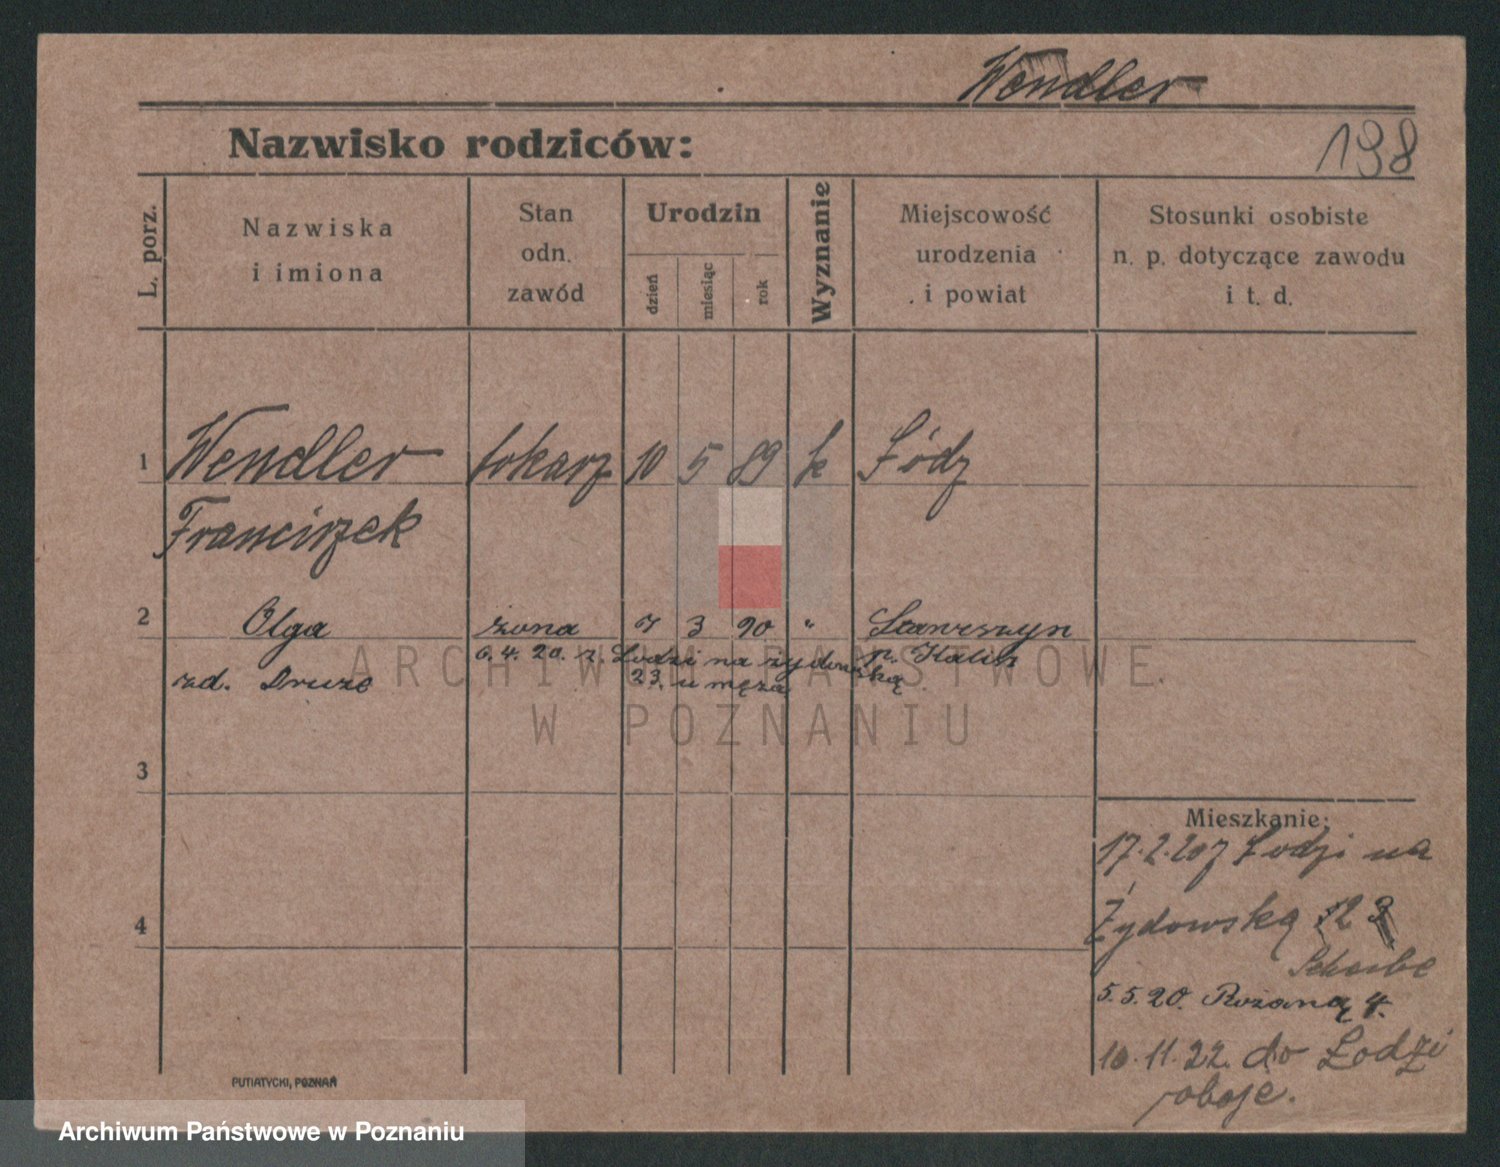 Wendler
Nazwisko rodziców:
198
L. porz.
Nazwiska
i imiona
Stan
odn.
zawód
Urodzin
dzień
miesiąc
rok
Wyznanie
Miejscowość
urodzenia
i powiat
Stosunki osobiste
n. p. dotyczące zawodu
i t. d.
1 Wendler tokarz 10 5 89 k Łódz
Franciszek
2 Olga żona 7 3 90 " Stawiszyn
6.4.20. z Łodzi na żydowską
p. Kalisz
zd. Druze
23. u męża
3
4
Mieszkanie:
17.2.20 z Łodzi na
Żydowską
5.5.20. Różaną 4.
10.11.22. do Łodzi
oboje.
PUTIATYCKI, POZNAŃ
ARCHIWUM PAŃSTWOWE
W POZNANIU
Archiwum Państwowe w Poznaniu